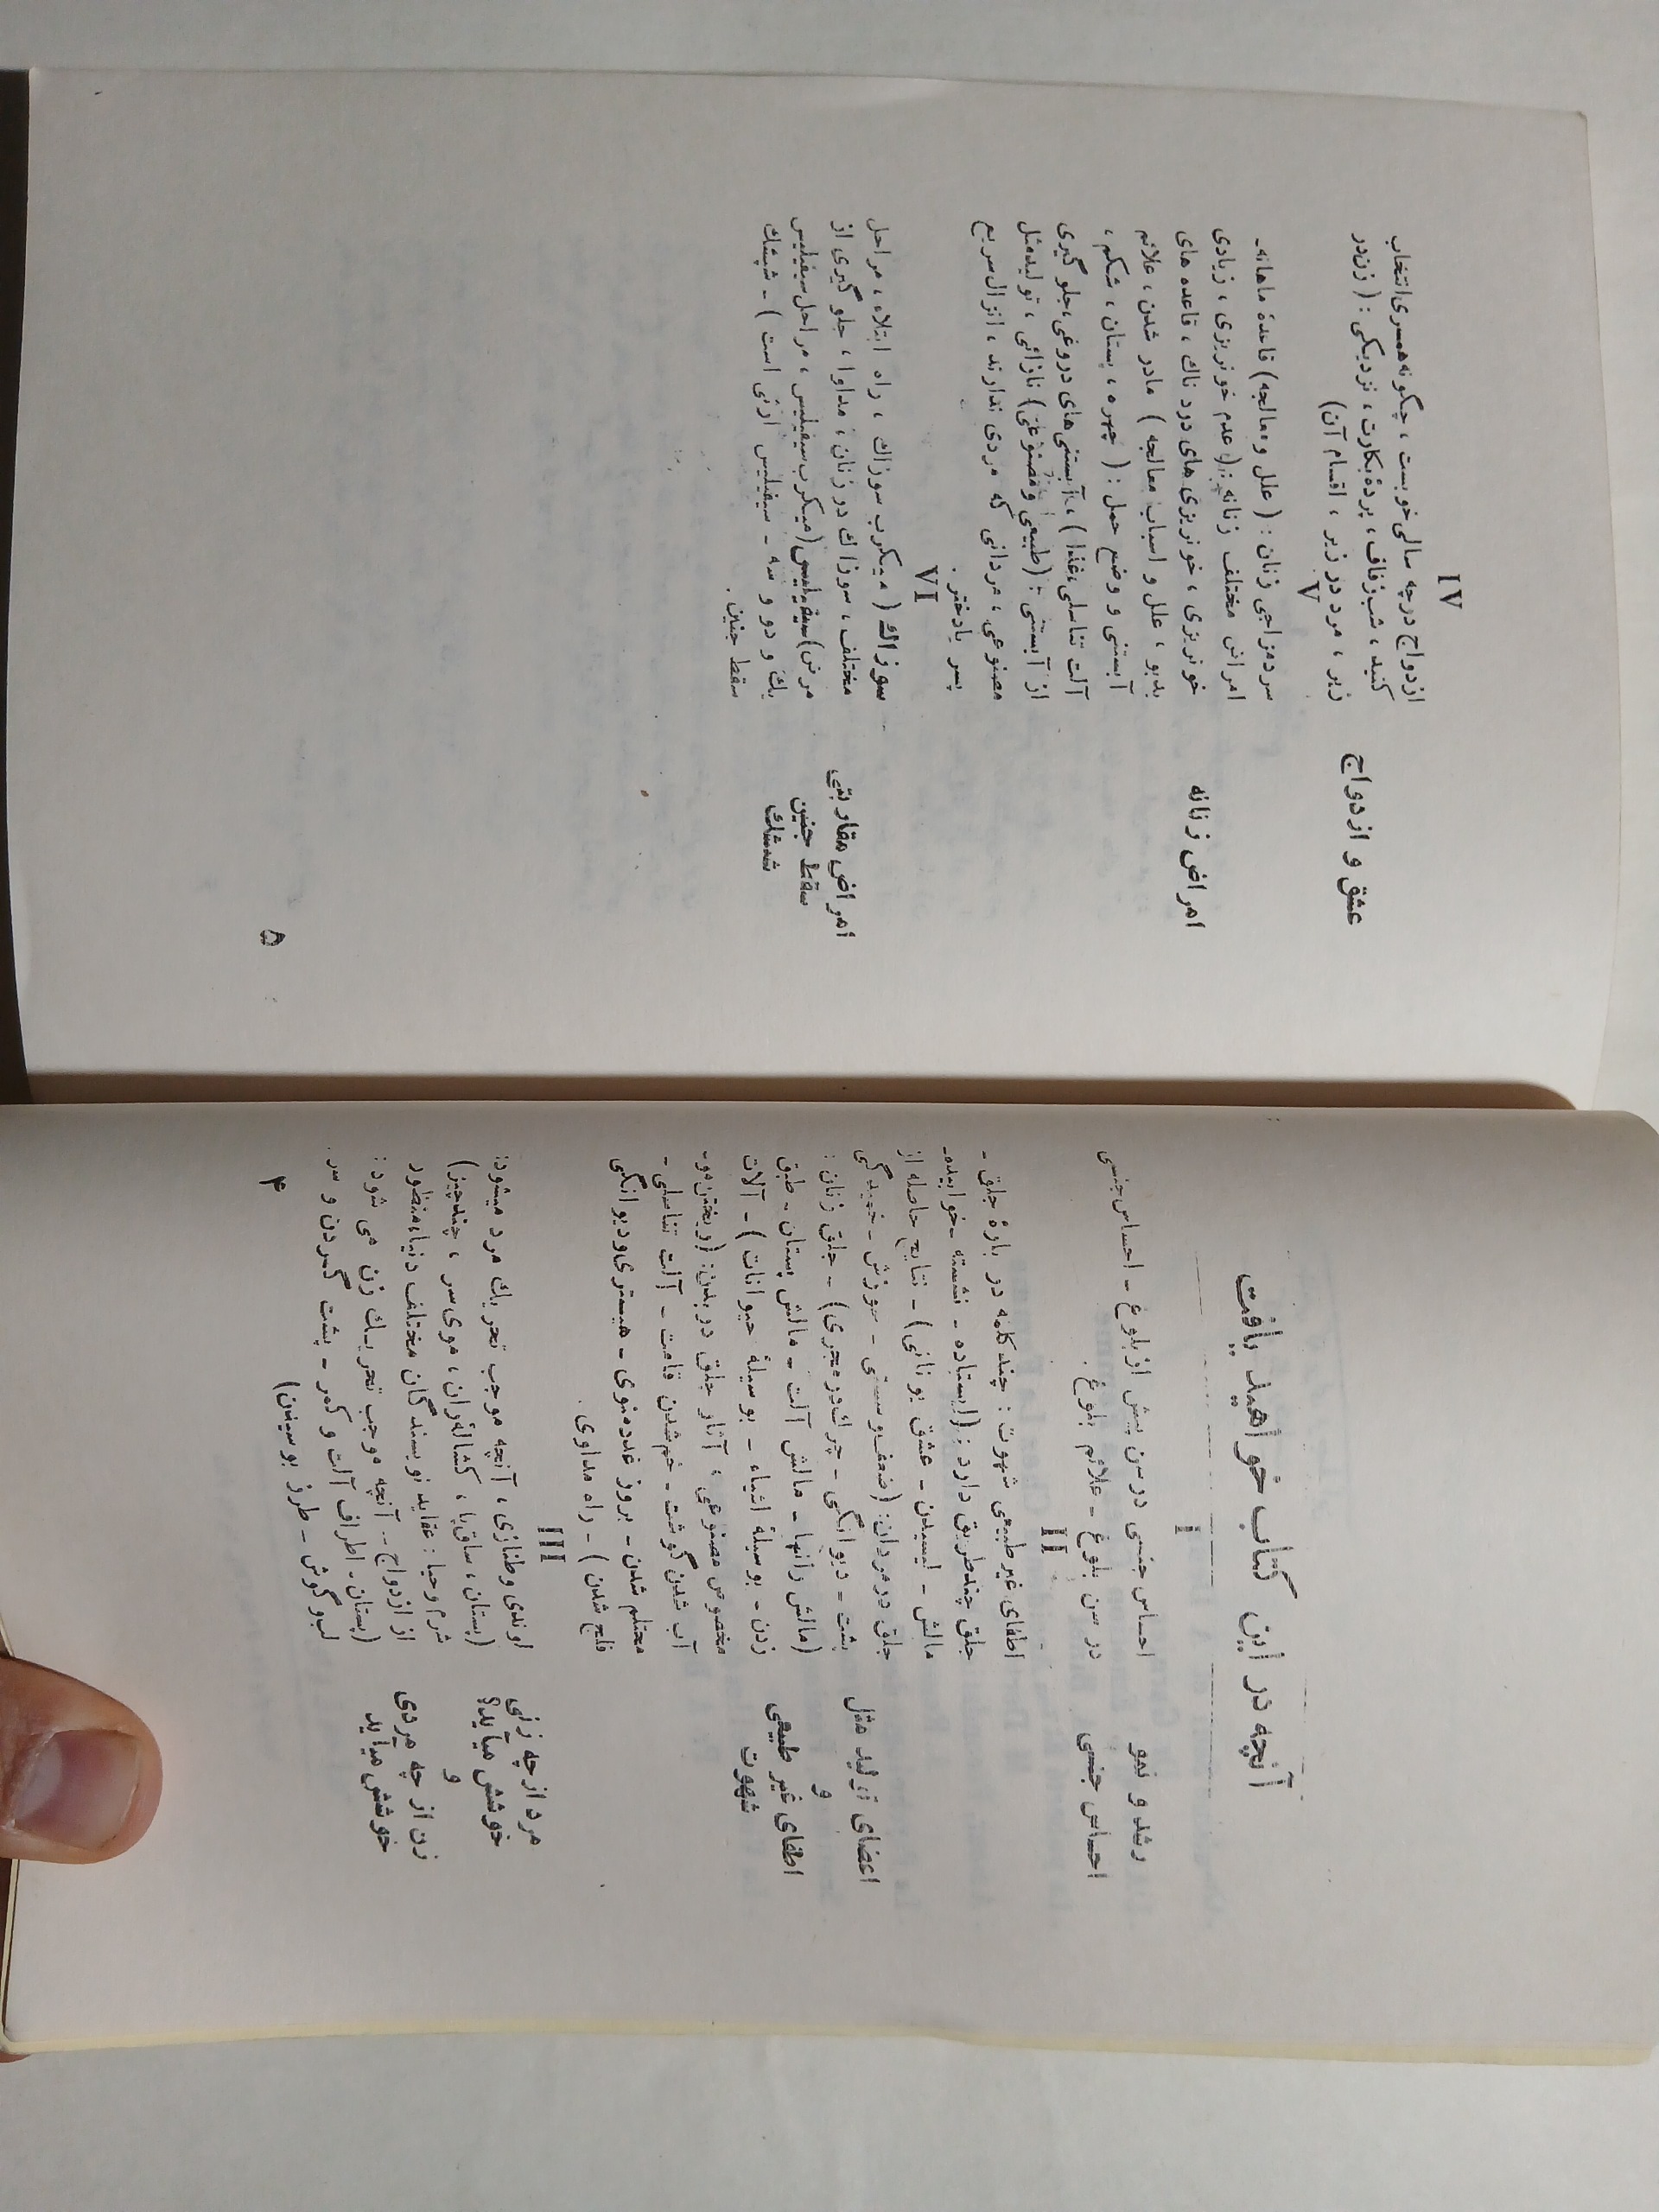 آنچه در این کتاب خواهید یافت
I
رشد و نمو
احساس جنسی
احساس جنسی در سن پیش از بلوغ - احساس جنسی
در سن بلوغ - علائم بلوغ .
II
اعضای تولید مثل
و
اطفای غیر طبیعی
شهوت
اطفای غیر طبیعی شهوت : چند کلمه در بارهٔ جلق -
جلق چند طریق دارد : (ایستاده - نشسته - خوابیده-
مالش - لیسیدن - عشق یونانی) - نتایج حاصله از
جلق در مردان: (ضعف و سستی - سوزش - خمیدگی
پشت - دیوانگی - چرك در مجری) - جلق زنان :
(مالش رانها - مالش آلت - مالش پستان - طبق
زدن - بوسیلهٔ اشیاء - بوسیلهٔ حیوانات) - آلات
مخصوص مصنوعی ، آثار جلق در بدن: (ریختن مو-
آب شدن گوشت - خم شدن قامت - آلت تناسلی -
محتلم شدن - بروز غدد منوی - هیستری و دیوانگی
فلج شدن) - راه مداوی .
III
مرد از چه زنی
خوشش میآید؟
و
زن از چه مردی
خوشش میاید
لوندی و طنازی ، آنچه موجب تحریك مرد میشود:
(پستان ، ساق پا ، کشاله ران ، موی سر ، چند چیز)
شرم و حیا : عقاید نویسندگان مختلف دنیا، منظور
از ازدواج - آنچه موجب تحریك زن می شود :
(پستان - اطراف آلت و کمر - پشت گردن و سر
لب و گوش - طرز بوسیدن)
۴
IV
عشق و ازدواج
ازدواج در چه سالی خوبست ، چگونه همسری انتخاب
کنید ، شب زفاف ، پردهٔ بکارت ، نزدیکی : (زن در
زیر ، مرد در زیر ، اقسام آن)
V
امراض زنانه
سرد مزاجی زنان : (علل و معالجه) قاعدهٔ ماهانه-
امراض مختلف زنانه : (عدم خونریزی ، زیادی
خونریزی ، خونریزی های درد ناك ، قاعده های
بدبو ، علل و اسباب معالجه ) مادر شدن ، علائم
آبستنی و وضع حمل : ( چهره ، پستان ، شکم ،
آلت تناسلی ، غذا) ، آبستنی های دروغی ، جلوگیری
از آبستنی : (طبیعی و مصنوعی) نازائی ، تولید مثل
مصنوعی ، مردانی که مردی ندارند ، انزال سریع
پسر یا دختر .
VI
امراض مقاربتی
سقط جنین
شپشك
سوزاك ( میکرب سوزاك ، راه ابتلاء ، مراحل
مختلف ، سوزاك در زنان ، مداوا ، جلوگیری از
مرض) سیفیلیس (میکرب سیفیلیس ، مراحل سیفیلیس
یك و دو و سه - سیفیلیس ارثی است) - شپشك
سقط جنین .
۵